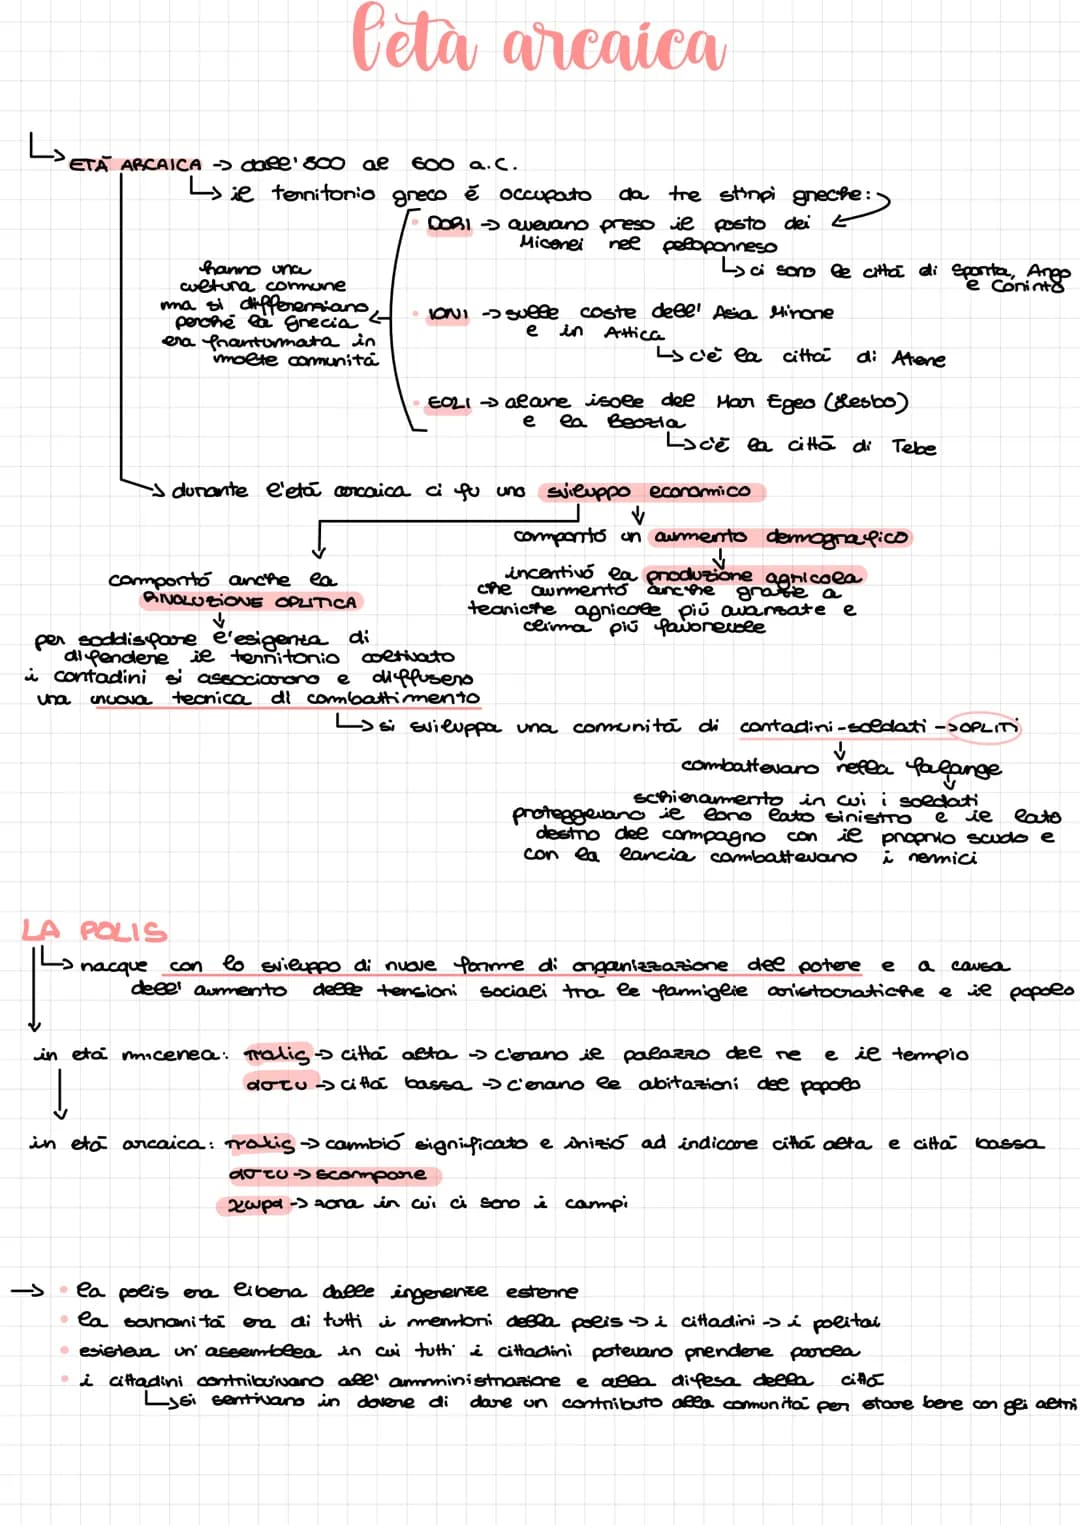 l'età arcaica
ETÁ ARCAICA → dall'800 al 600 a.C.
il territorio greco é occupato da tre stirpi greche:
DORI → avevano preso il posto dei
Micenei nel peloponneso
ci sono le cittá di Sparta, Argo
e Corinto
hanno una
cultura comune
ma si differenziano
perché la Grecia
era frantumata in
molte comunitá
IONI → sulle coste dell'Asia Minore
e in Attica
c'é la cittá di Atene
EOLI → alcune isole del Mar Egeo (Lesbo)
e la Beozia
c'é la cittá di Tebe
durante l'etá arcaica ci fu uno sviluppo economico
comportó un aumento demografico
incentivó la produzione agricola
che aumentó anche grazie a
tecniche agricole piú avanzate e
clima piú favorevole
comportó anche la
RIVOLUZIONE OPLITICA
per soddisfare l'esigenza di
difendere il territorio coltivato
i contadini si associarono e diffusero
una nuova tecnica di combattimento
si sviluppa una comunitá di contadini-soldati → OPLITI
combattevano nella falange
schieramento in cui i soldati
proteggevano il loro lato sinistro e il lato
destro del compagno con il proprio scudo e
con la lancia combattevano i nemici
LA POLIS
nacque con lo sviluppo di nuove forme di organizzazione del potere e a causa
dell'aumento delle tensioni sociali tra le famiglie aristocratiche e il popolo
in etá micenea: πολις → cittá alta → c'erano il palazzo del re e il tempio
αστυ → cittá bassa → c'erano le abitazioni del popolo
in etá arcaica: πολις → cambió significato e inizió ad indicare cittá alta e cittá bassa
αστυ → scompare
χωρα → zona in cui ci sono i campi
→ • la polis era libera dalle ingerenze esterne
• la sovranitá era di tutti i membri della polis → i cittadini → i politai
• esisteva un'assemblea in cui tutti i cittadini potevano prendere parola
• i cittadini contribuivano all'ammministrazione e alla difesa della cittá
si sentivano in dovere di dare un contributo alla comunitá per stare bene con gli altri